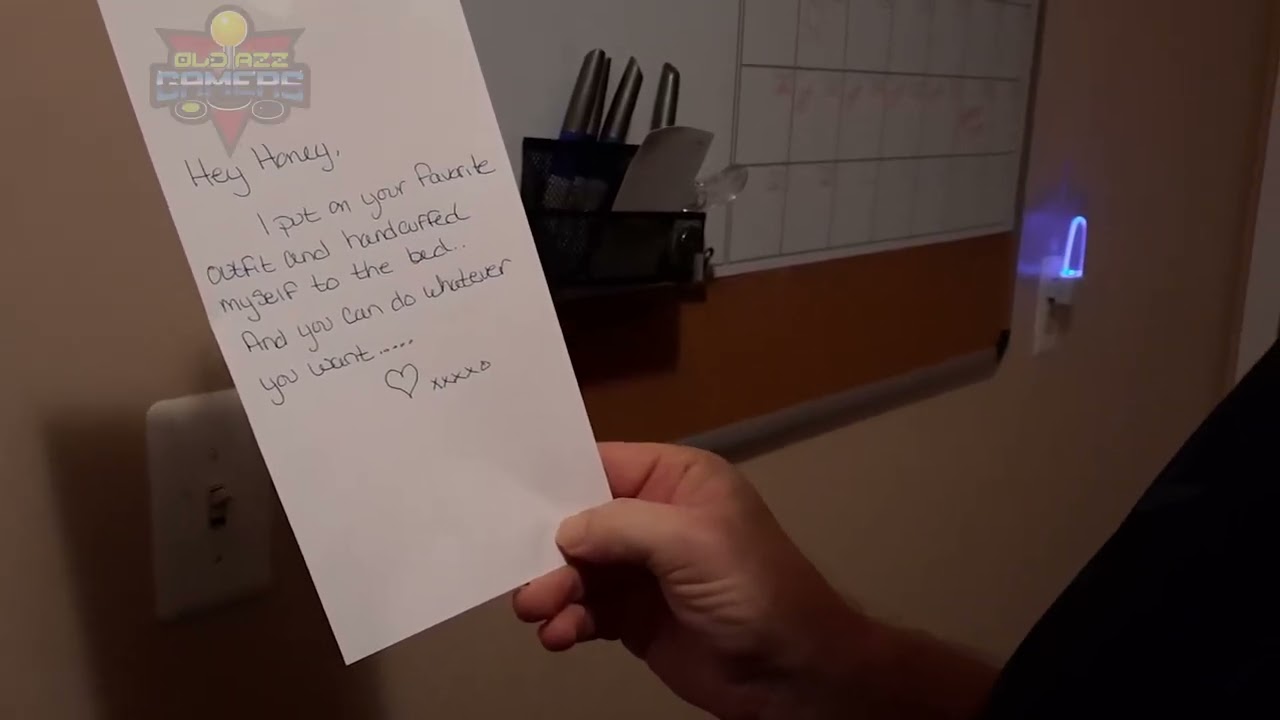 OLD AZZ
GAMERS
Hey Honey,
I put on your favorite
outfit and handcuffed
myself to the bed..
And you can do whatever
you want.....
♡ xxxxo